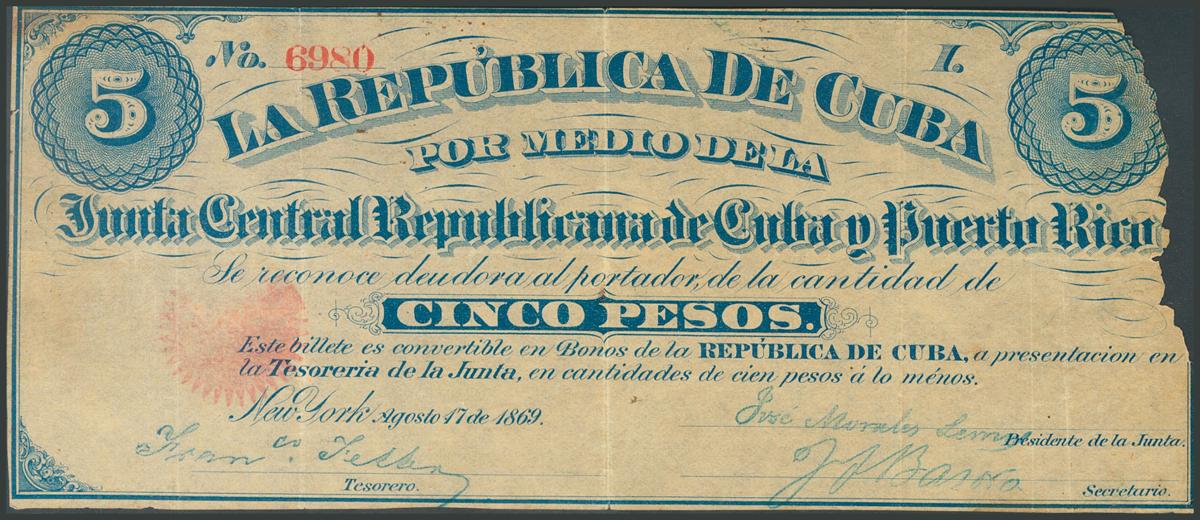 5 No. 6980 1. 5
LA REPÚBLICA DE CUBA
POR MEDIO DE LA
Junta Central Republicana de Cuba y Puerto Rico
Se reconoce deudora al portador, de la cantidad de
CINCO PESOS.
Este billete es convertible en Bonos de la REPÚBLICA DE CUBA, a presentacion en
la Tesoreria de la Junta, en cantidades de cien pesos á lo ménos.
New York Agosto 17 de 1869.
José Morales Lemus
Presidente de la Junta.
Franco.
Tesorero.
Secretario.